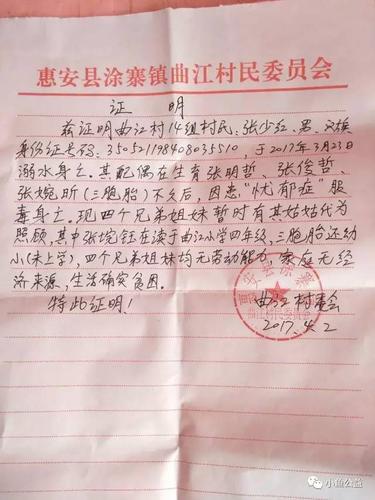 惠安县涂寨镇曲江村民委员会
证 明
兹证明曲江村14组村民：张少红、男、汉族
身份证号码：350521198408035510，于2017年3月23日
溺水身亡。其配偶在生育张明哲、张俊哲、
张婉昕（三胞胎）不久后，因患"忧郁症"服
毒身亡。现四个兄弟姐妹暂时有其姑姑代为
照顾，其中张婉钰在读于曲江小学四年级，三胞胎还幼
小（未上学），四个兄弟姐妹均无劳动能力，家庭无经
济来源，生活确实贫困。
特此证明！
曲江村委会
2017.4.2
惠安县涂寨镇
曲江村民委员会
小鱼公益